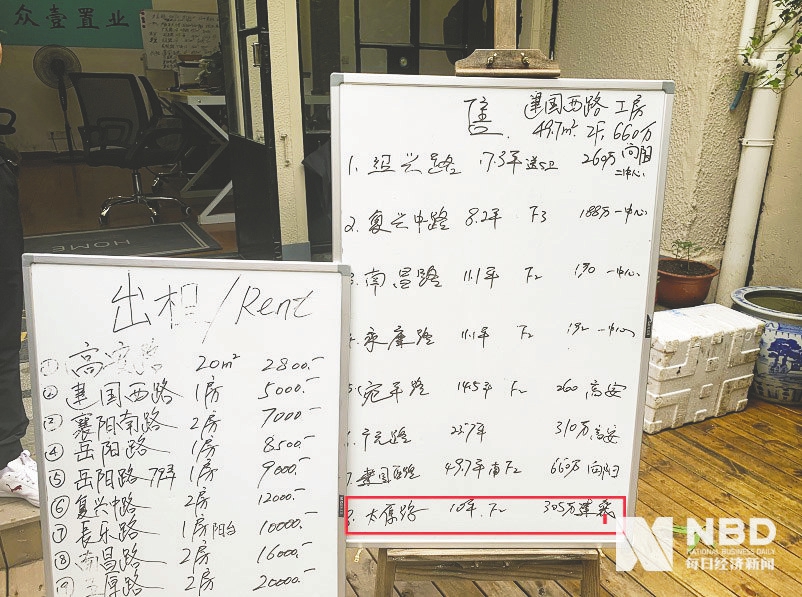 众壹置业
售 建国西路 工房
49.7m². 2F. 660万
1. 绍兴路 7.3平 送2卫 260万 向阳 二中心
2. 复兴中路 8.2平 F3 188万 一中心
3. 南昌路 11.1平 F2 一中心
4. 永康路 11.1平 F2 一中心
5. 宛平路 14.5平 F2 260 高安
6. 路 23.7平 310万 高安
7. 建国西路 49.7平 南F2 660万 向阳
8. 太原路 10平. F2 305万 建襄
HOME
出租/Rent
① 高安路 20m² 2800.-
② 建国西路 1房 5000.-
③ 襄阳南路 2房 7000.-
④ 岳阳路 1房 8500.-
⑤ 岳阳路 79弄 1房 9000.-
⑥ 复兴中路 2房 12000.-
⑦ 長乐路 1房 阳台 10000.-
⑧ 南昌路 2房 16000.-
⑨ 路 2房 20000.-
NBD
NATIONAL BUSINESS DAILY
每日经济新闻